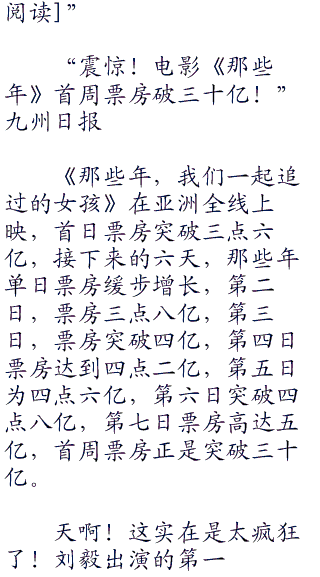 阅读]”
“震惊！电影《那些
年》首周票房破三十亿！”
九州日报
《那些年，我们一起追
过的女孩》在亚洲全线上
映，首日票房突破三点六
亿，接下来的六天，那些年
单日票房缓步增长，第二
日，票房三点八亿，第三
日，票房突破四亿，第四日
票房达到四点二亿，第五日
为四点六亿，第六日突破四
点八亿，第七日票房高达五
亿，首周票房正是突破三十
亿。
天啊！这实在是太疯狂
了！刘毅出演的第一